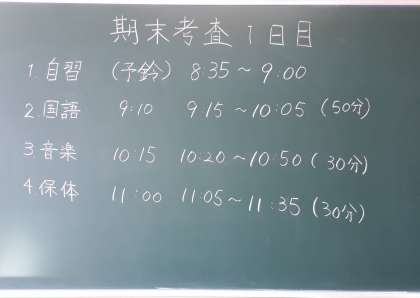 期末考査 1日目
1.自習 (予鈴) 8:35～9:00
2.国語 9:10 9:15～10:05 (50分)
3.音楽 10:15 10:20～10:50 (30分)
4.保体 11:00 11:05～11:35 (30分)